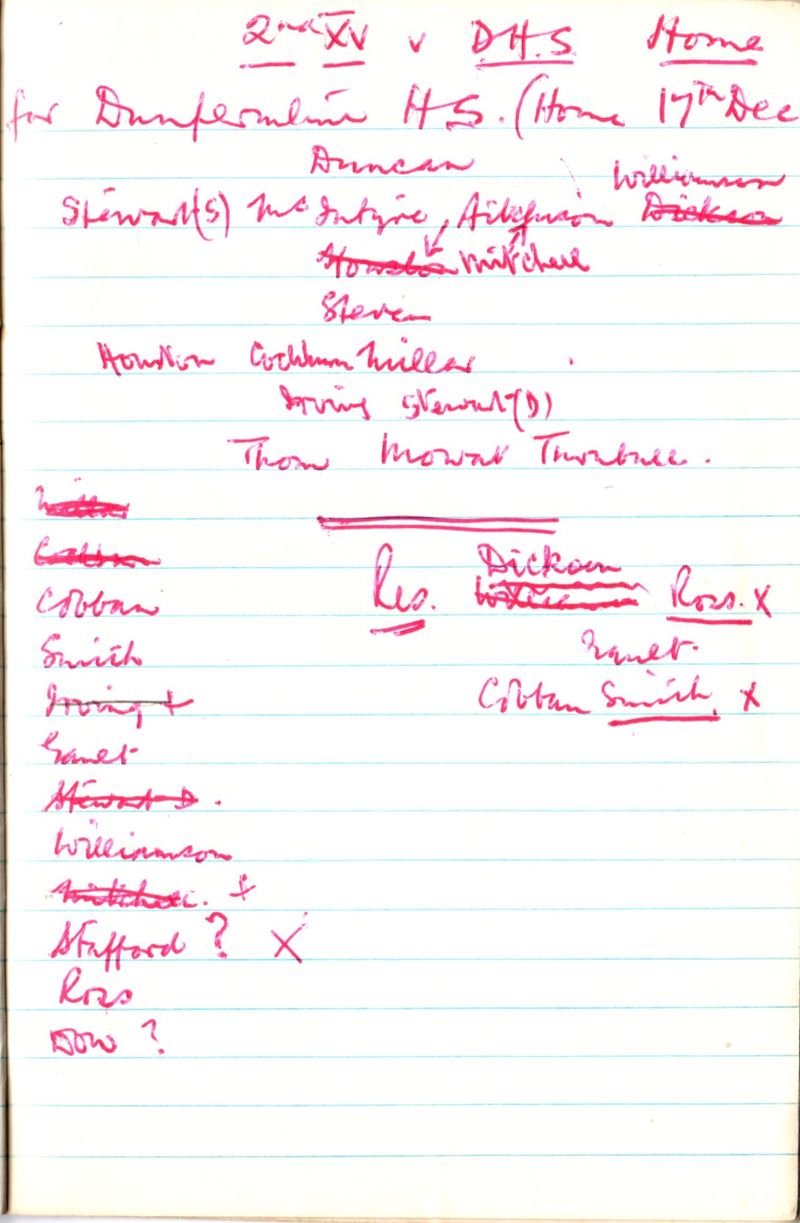 2nd XV v D.H.S Home
for Dunfermline H.S. (Home 17th Dec
Duncan
Williamson
Stewart(S) McIntyre, Aitkenson Dickson
Houston Mitchell
Steven
Houston Cockburn Millar
Irving Stewart(D)
Thom Mowat Turnbull.
Millar
Cobban
Dickson
Res. Williamson Ross. X
Cobban
Smith
Cobban Smith. X
Irving +
Stewart D.
Williamson
Mitchell. +
Stafford ? X
Ross
Dow ?